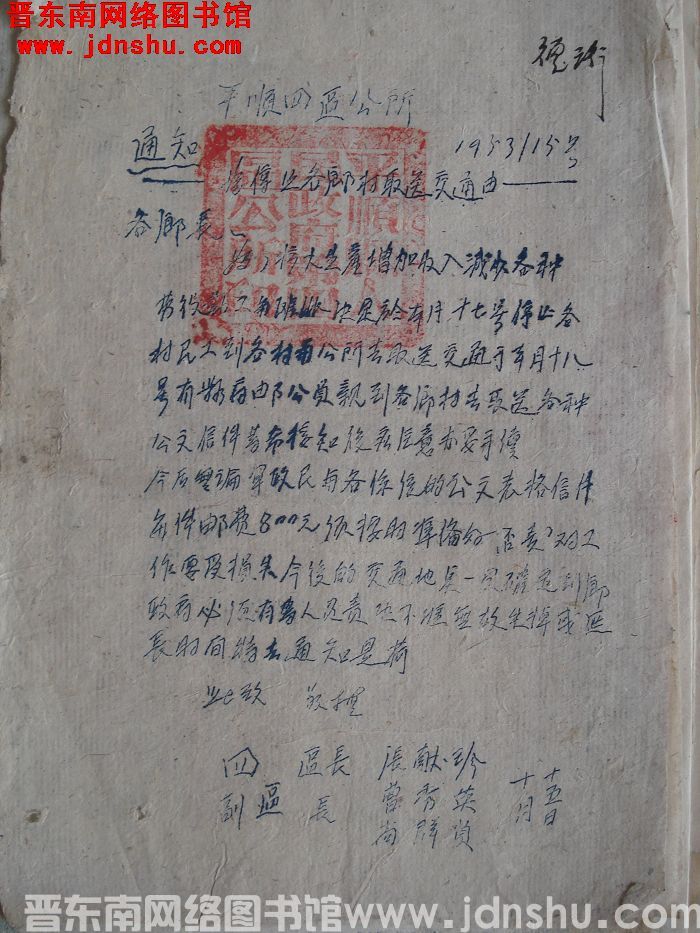 晋东南网络图书馆
www.jdnshu.com
平順四區公所
通知 1953/15号
為停止各鄉村取送交通由
各鄉長
為了擴大生產增加收入減少各种
决定於本月十七号停止各
村民工到各村公所去取送交通于本月十八
号有郵電由郵公員親到各鄉村去取送各种
公文信件等希接知後应注意亦要手續
今后無論軍政民与各係統的公文表格信件
每件邮费800元须按时準備好否责对工
作要受損失今後的交通地点一定確定到鄉
政府必须有專人負责决不准無故失掉或延
長时间特去通知是荷
此致 敬礼
四 區長 張献珍
副區長 曹秀英
尚群贤
十月
十五日
晋东南网络图书馆 www.jdnshu.com